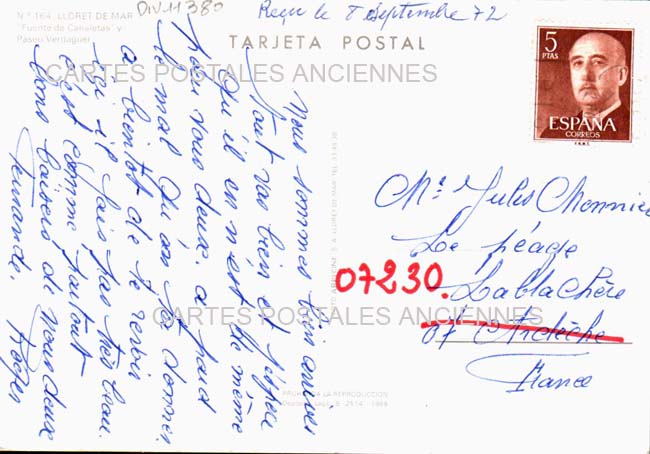 Nº 164. LLORET DE MAR
"Fuente de Canaletas" y
Paseo Verdaguer
DIV11380
Reçu le 8 Septembre 72
TARJETA POSTAL
CARTES POSTALES ANCIENNES
5
PTAS
ESPAÑA
CORREOS
F.N.M.T.
Nous sommes bien arrivés
tout vas bien et j'espère
qu'il en n'est de même
pour vous deux. a part
le mal qu'on
a bientot de te revoir
ici il fais pas très beau.
c'est comme partout
bons baisers de nous deux
Fernande. Roger
Mr Jules Monnier
Le péage
07230. Lablachère
07 Ardèche
France
CARTES POSTALES ANCIENNES
PROHIBIDA LA REPRODUCCION